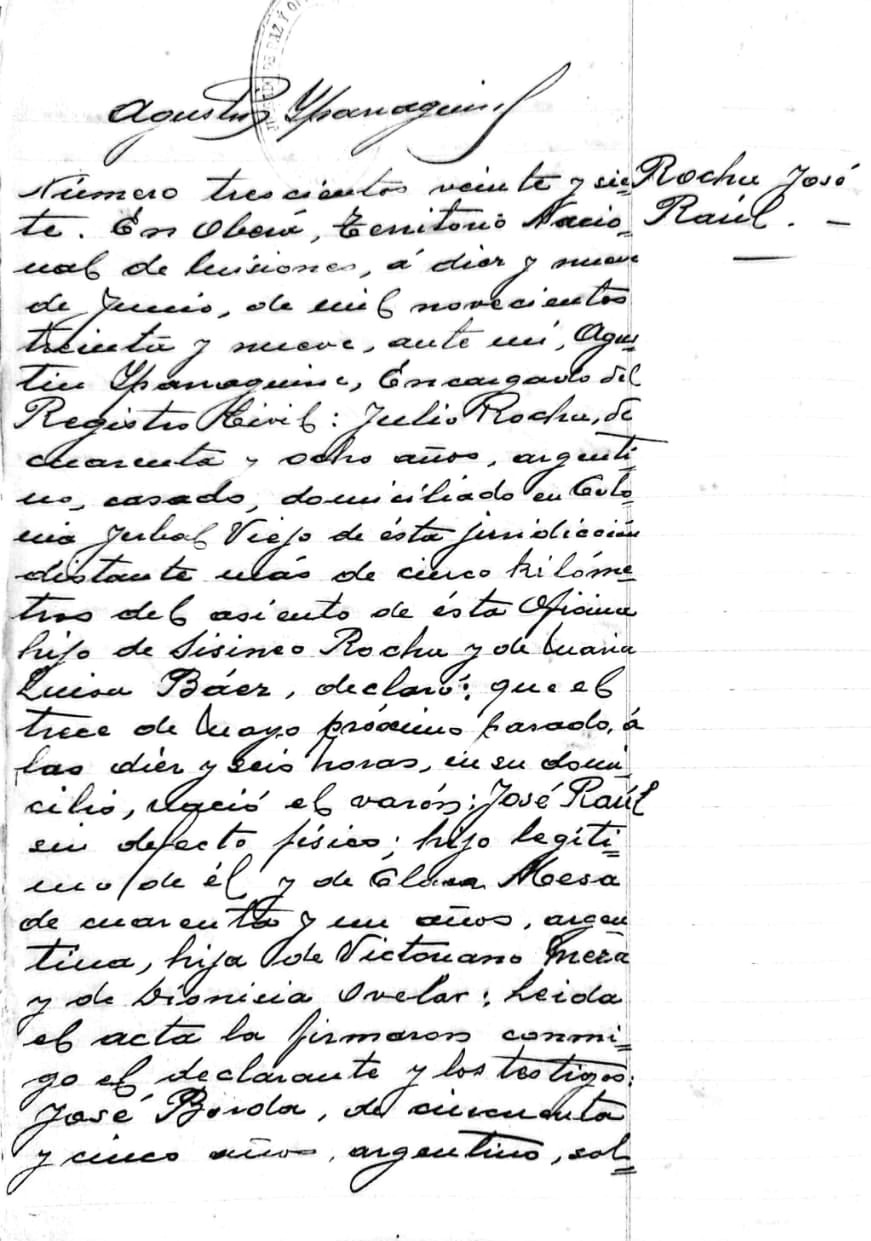 Agustin Yparraguirre
Número trescientos veinte y sie=
te. En Oberá, Territorio Nacio=
nal de Misiones, á diez y nueve
de Junio, de mil novecientos
treinta y nueve, ante mí, Agus
tin Yparraguirre, Encargado del
Registro Civil: Julio Rocha, de
cuarenta y ocho años, argenti
no, casado, domiciliado en Colo=
nia Yerbal Viejo de ésta juridicción
distante más de cinco kilóme=
tros del asiento de ésta Oficina
hijo de Sisineo Rocha y de Maria
Luisa Báez, declaró: que el
trece de Mayo próximo pasado, á
las diez y seis horas, en su domi
cilio, nació el varón: José Raúl
sin defecto físico; hijo legíti=
mo de él y de Elena Mesa
de cuarenta y un años, argen
tina, hija de Victoriano Meza
y de Dionicia Ovelar: Leida
el acta la firmaron conmi=
go el declarante y los testigos:
José Borda, de cincuenta
y cinco años, argentino, sol=
Rocha José
Raúl. —